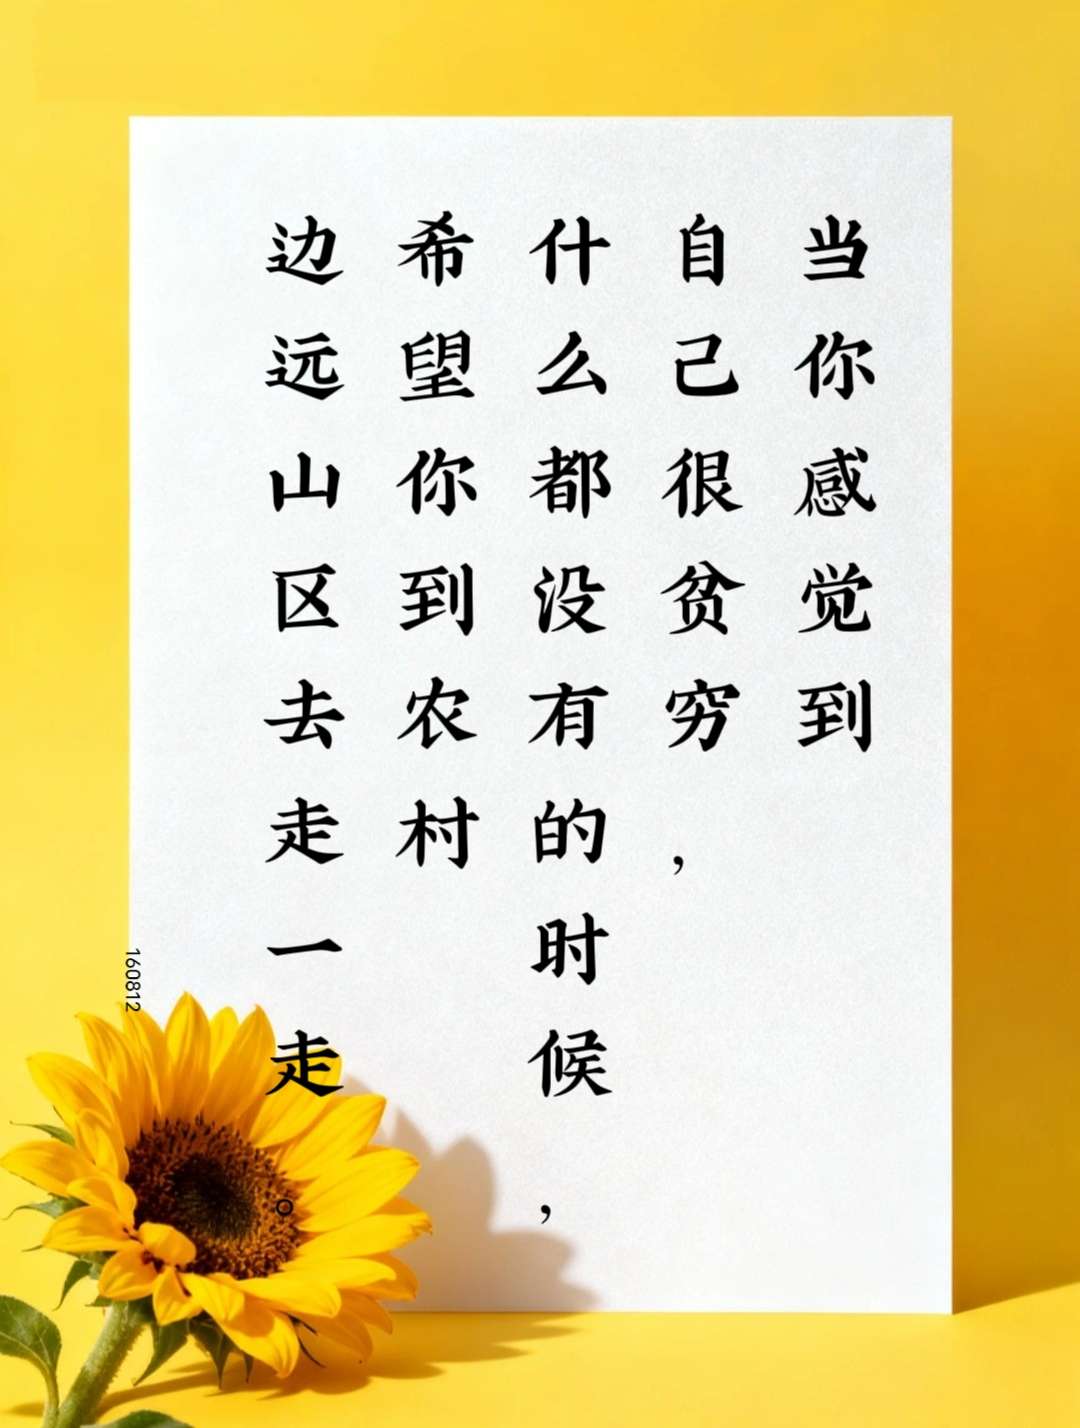 当你感觉到
自己很贫穷，
什么都没有的时候，
希望你到农村
边远山区去走一走。
160812